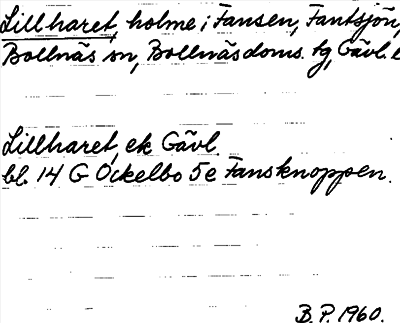 Lillharet, holme i Fansen, Fantsjön,
Bollnäs sn, Bollnäsdoms. tg, Gävl. l
Lillharet, ek Gävl.
bl. 14 G Ockelbo 5e Fansknoppen.
B.P. 1960.